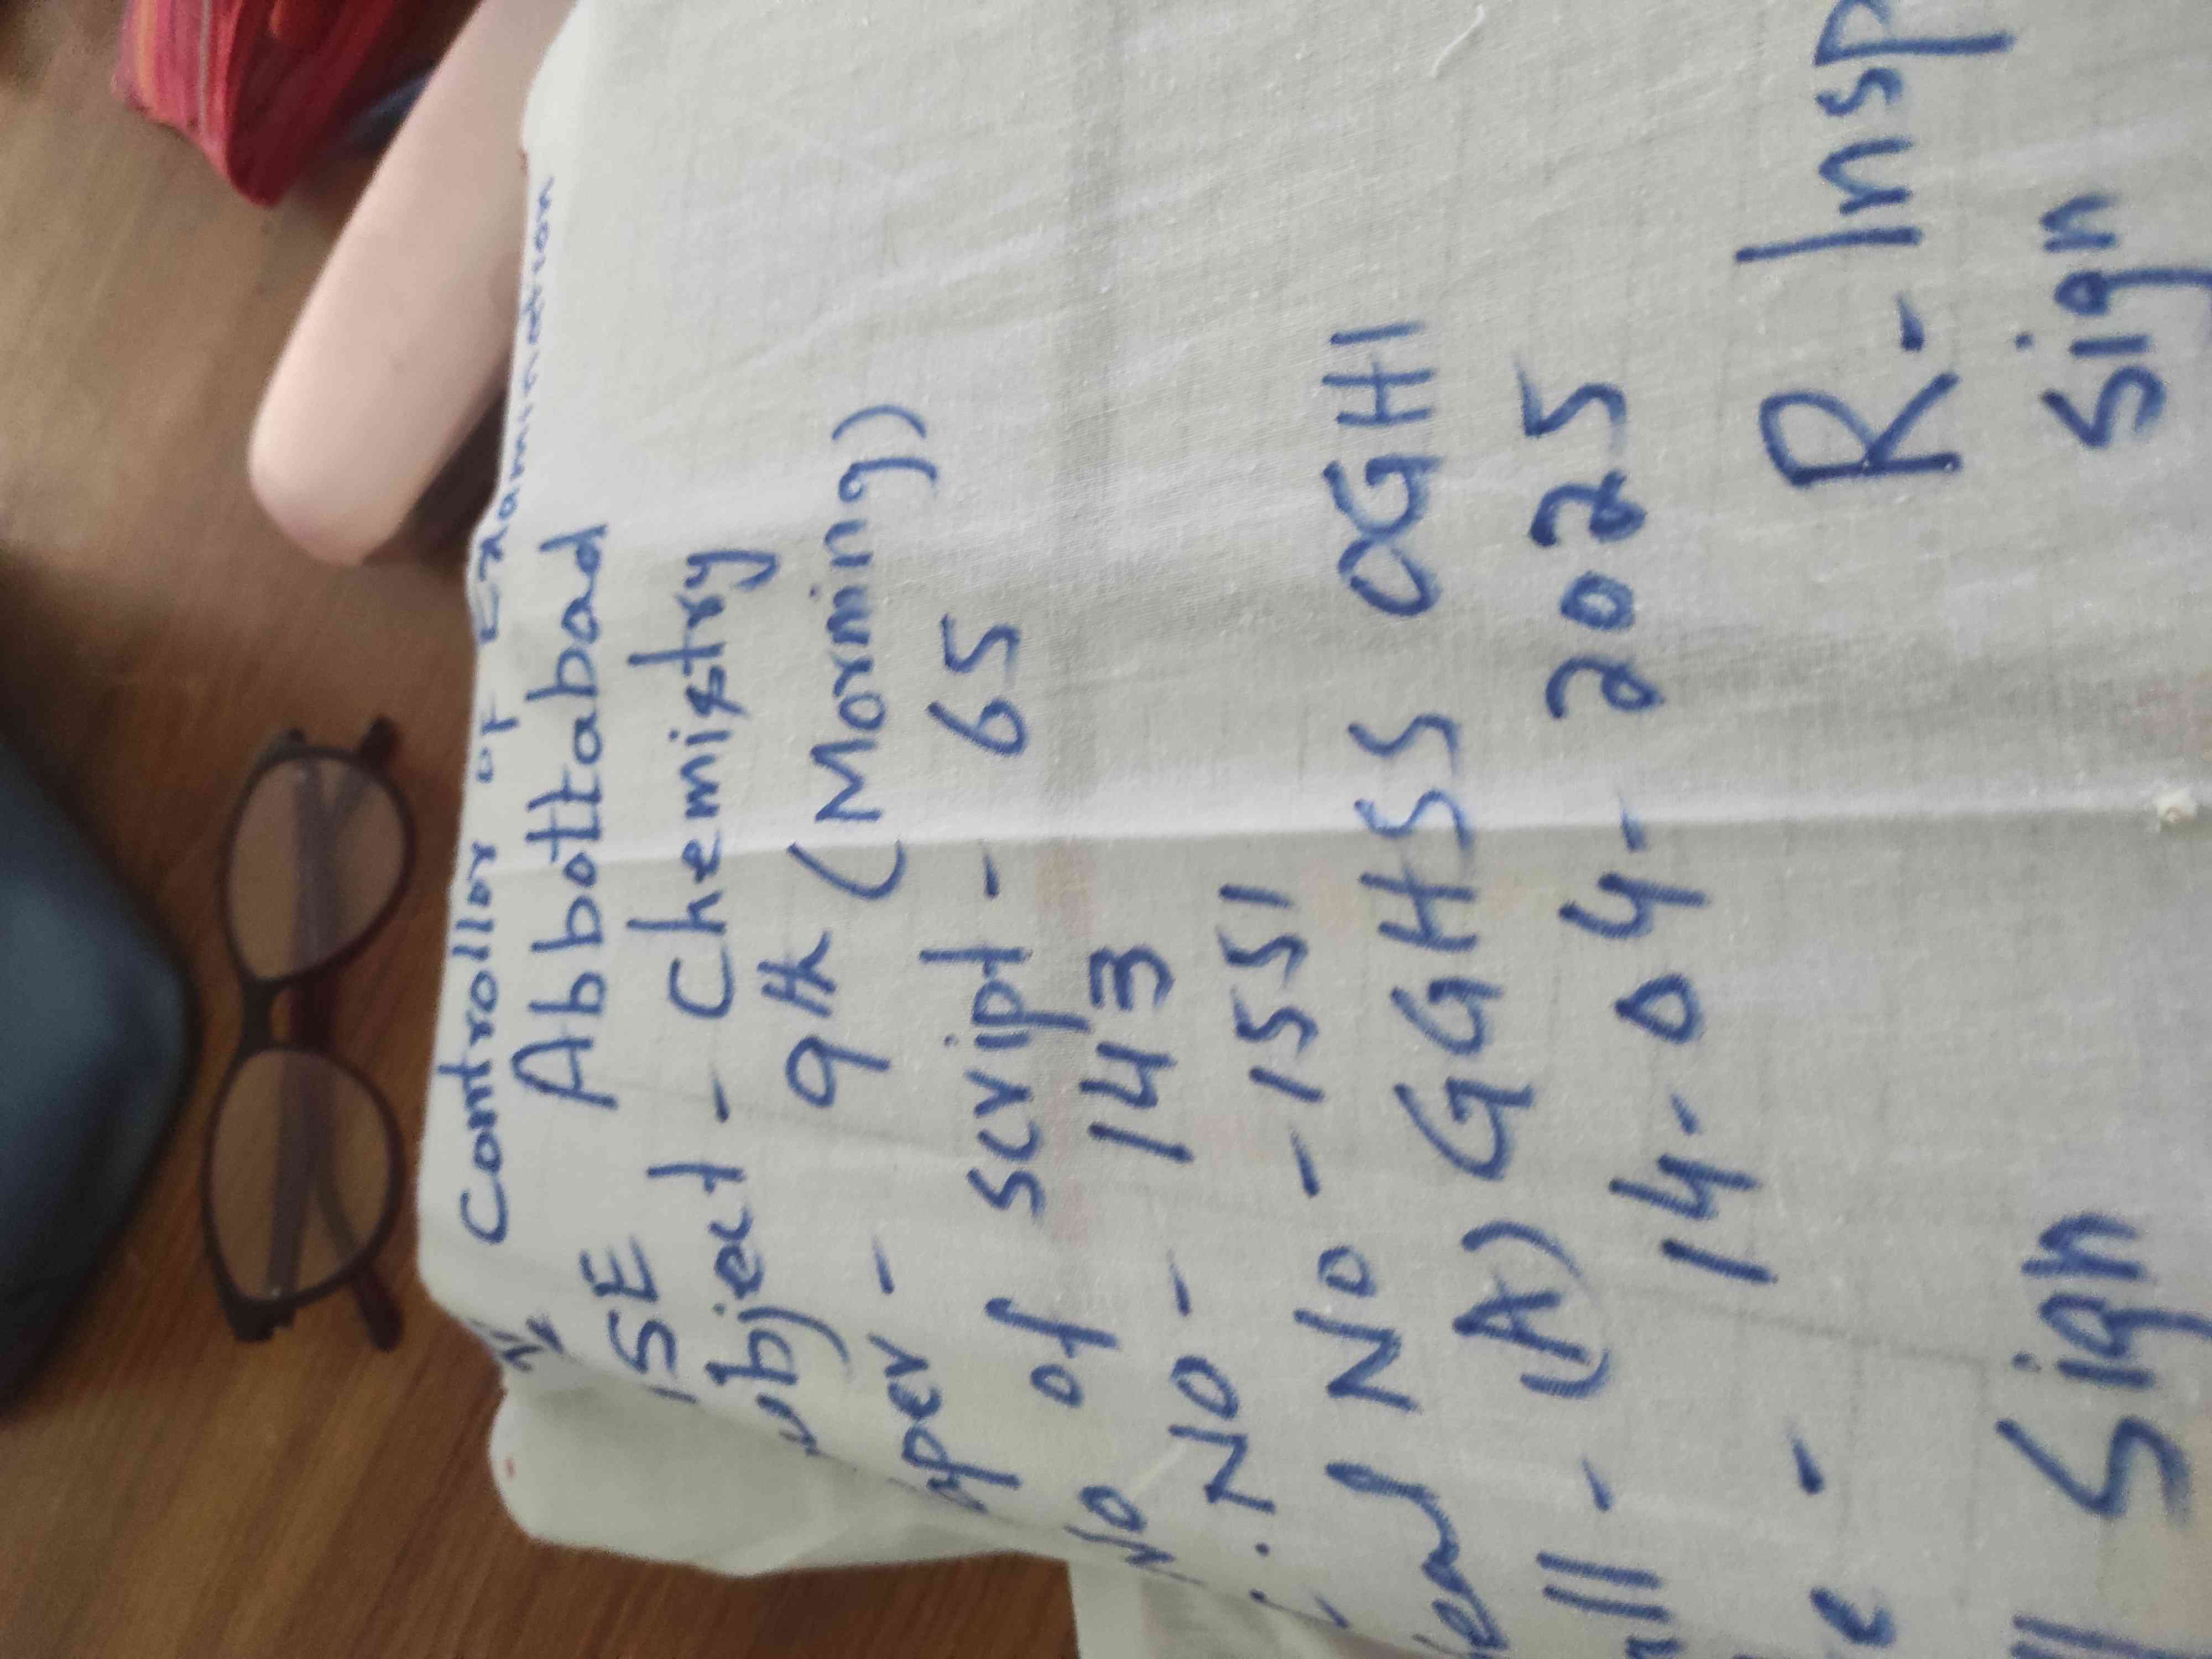 Controller of Examination
ISE Abbottabad
ubject - Chemistry
aper - 9th (Morning)
No of script - 65
No - 143
Seal No - 1551
all - (A) GGHSS OGHI
e - 14-04-2025
R-Insp
Sign Sign